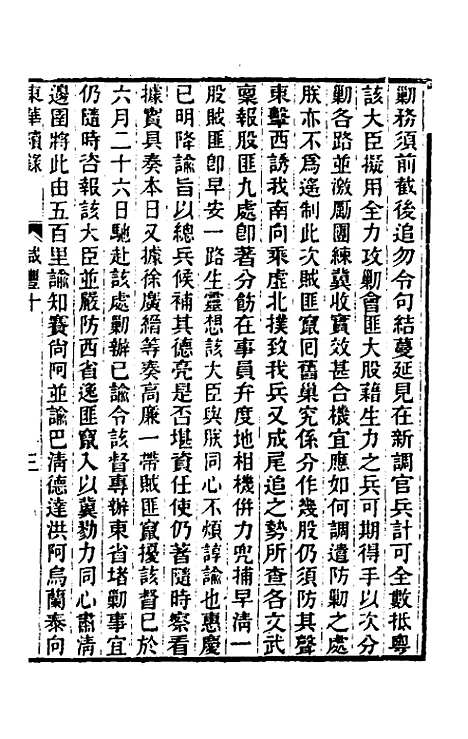 勦務須前截後追勿令句結蔓延見在新調官兵計可全數抵粵
該大臣擬用全力攻勦會匪大股藉生力之兵可期得手以次分
勦各路並激勵團練冀收實效甚合機宜應如何調遣防勦之處
朕亦不爲遙制此次賊匪竄回舊巢究係分作幾股仍須防其聲
東擊西誘我南向乘虛北撲致我兵又成尾追之勢所查各文武
稟報股匪九處卽著分飭在事員弁度地相機併力兜捕早清一
股賊匪卽早安一路生靈想該大臣與朕同心不煩諄諭也惠慶
已明降諭旨以總兵候補其德亮是否堪資任使仍著隨時察看
據實具奏本日又據徐廣縉等奏高廉一帶賊匪竄擾該督已於
六月二十六日馳赴該處勦辦已諭令該督專辦東省堵勦事宜
仍隨時咨報該大臣並嚴防西省逸匪竄入以冀勠力同心肅淸
邊圉將此由五百里諭知賽尙阿並諭巴淸德達洪阿烏蘭泰向
東華續錄 咸豐十 三